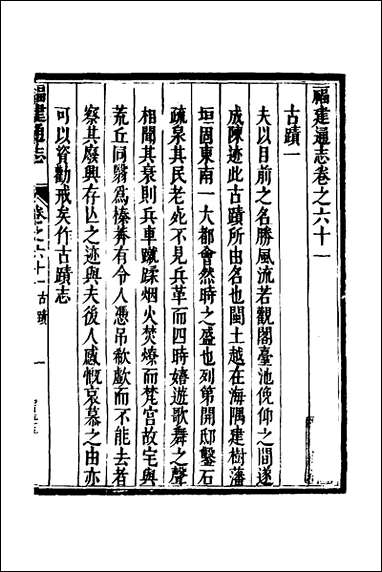 福建通志卷之六十一
古蹟一
夫以目前之名勝風流若觀閣臺池俛仰之間遂
成陳迹此古蹟所由名也閩土越在海隅建樹藩
垣固東南一大都會然時之盛也列第開邸鑿石
疏泉其民老死不見兵革而四時嬉遊歌舞之聲
相聞其衰則兵車蹴蹂烟火焚燎而梵宫故宅與
荒丘同翳爲榛莽有令人憑吊欷歔而不能去者
察其廢興存亾之迹與夫後人感慨哀慕之由亦
可以資勸戒矣作古蹟志
福建通志
卷之六十一 古蹟
一